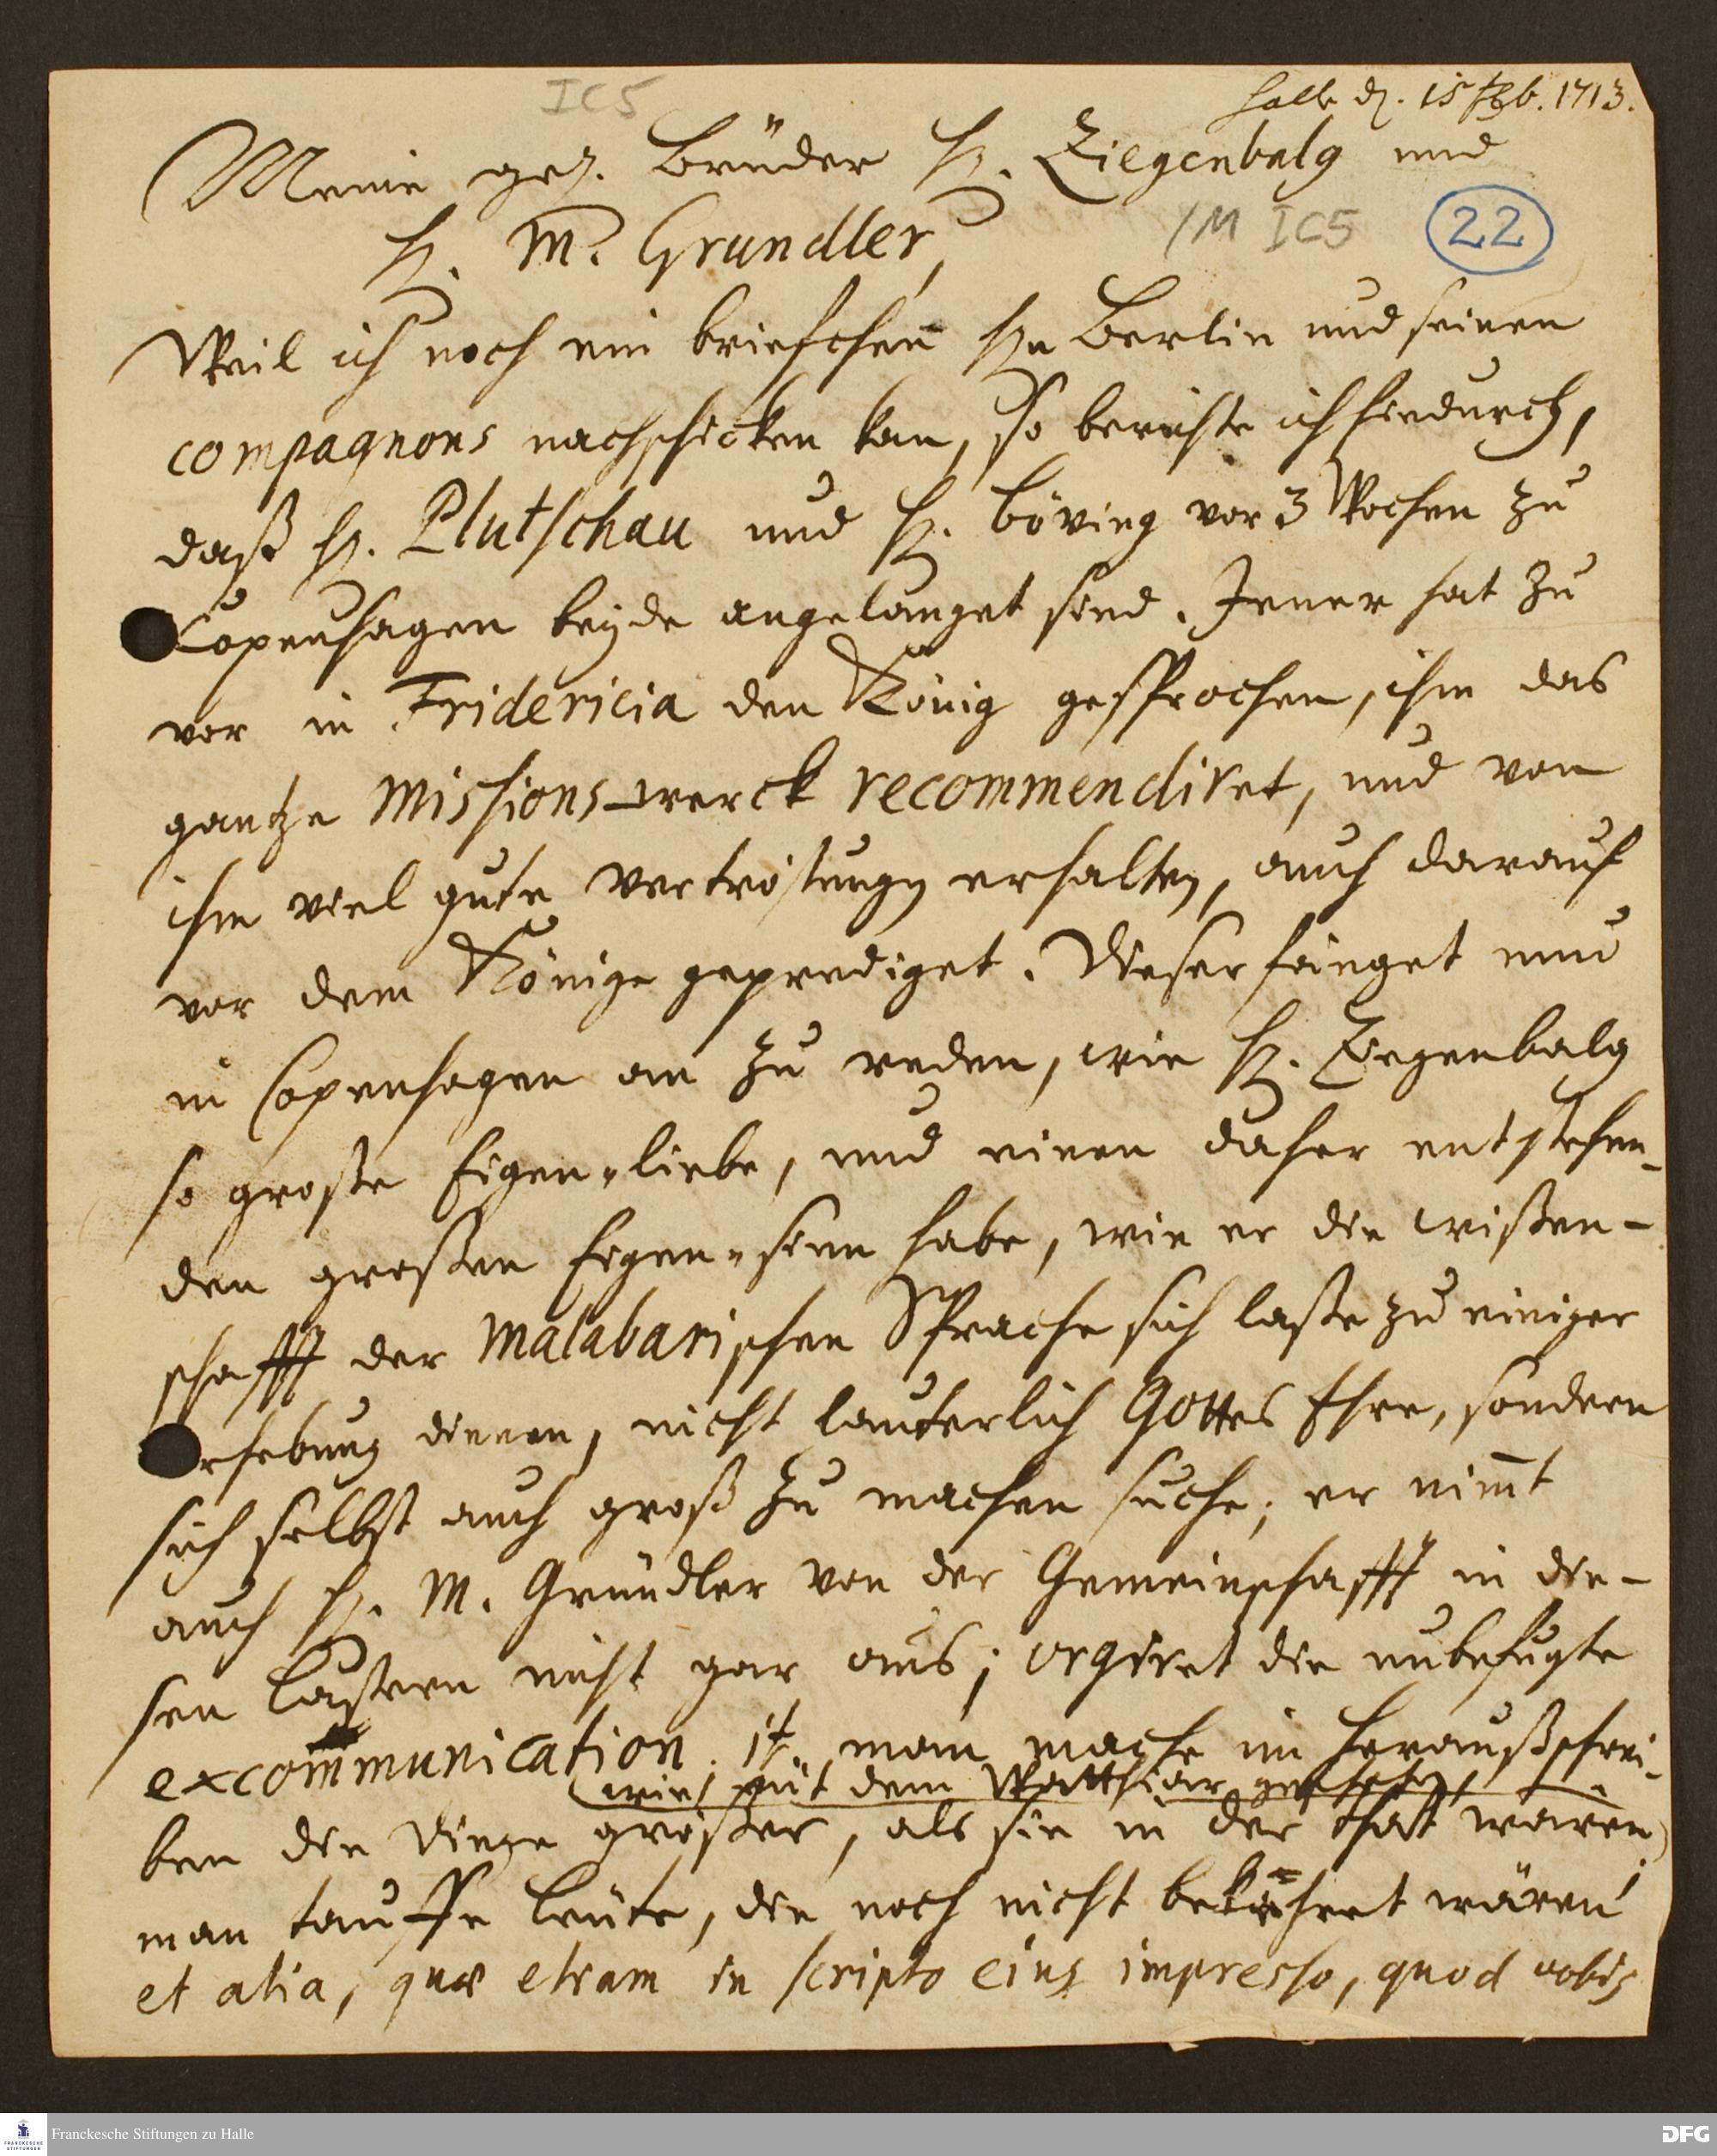 IC5
Halle d. 15 Feb. 1713.
Meine gel. Brüder H. Ziegenbalg und
H. M. Grundler,
/M IC5 22
Weil ich noch ein briefchen Hn Berlin und seinen
compagnons nachschicken kan, so berichte ich hiedurch,
daß H. Plutschau und H. Böving vor 3 Wochen zu
Copenhagen beyde angelanget sind. Jener hat zu
vor in Fridericia den König gesprochen, ihm das
gantze Missions-werck recommendiret, und von
ihm viel gute Vertröstungen erhalten, auch darauf
vor dem Könige geprediget. Dieser fänget nun
in Copenhagen an zu reden, wie H. Ziegenbalg
so große Eigen-liebe, und einen daher entstehen-
den großen Eigen-sinn habe, wie er die wißen-
schafft der Malabarischen Sprache sich laße zu einiger
Erhebung dienen, nicht lauterlich Gottes Ehre, sondern
sich selbst auch groß zu machen suche; er nimt
auch H. M. Gründler von der Gemeinschafft in die-
sen Lastern nicht gar aus; urgiret die unbefugte
excommunication. it. man mache im Heraußschrei-
(wies mit dem Watthiar geschehen,
ben die Dinge größer, als sie in der that wären)
man tauffe Leute, die noch nicht bekehret wären
et alia, quæ etiam in scripto eius impresso, quod vobis
Franckesche Stiftungen zu Halle
FRANCKESCHE STIFTUNGEN
DFG